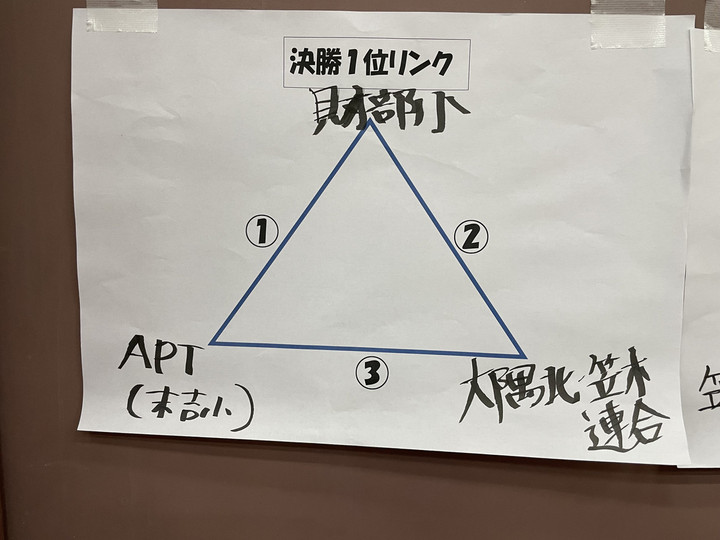 決勝1位リンク
財部小
①
②
APT
(末吉小)
③
大隅北・笠木
連合
笠